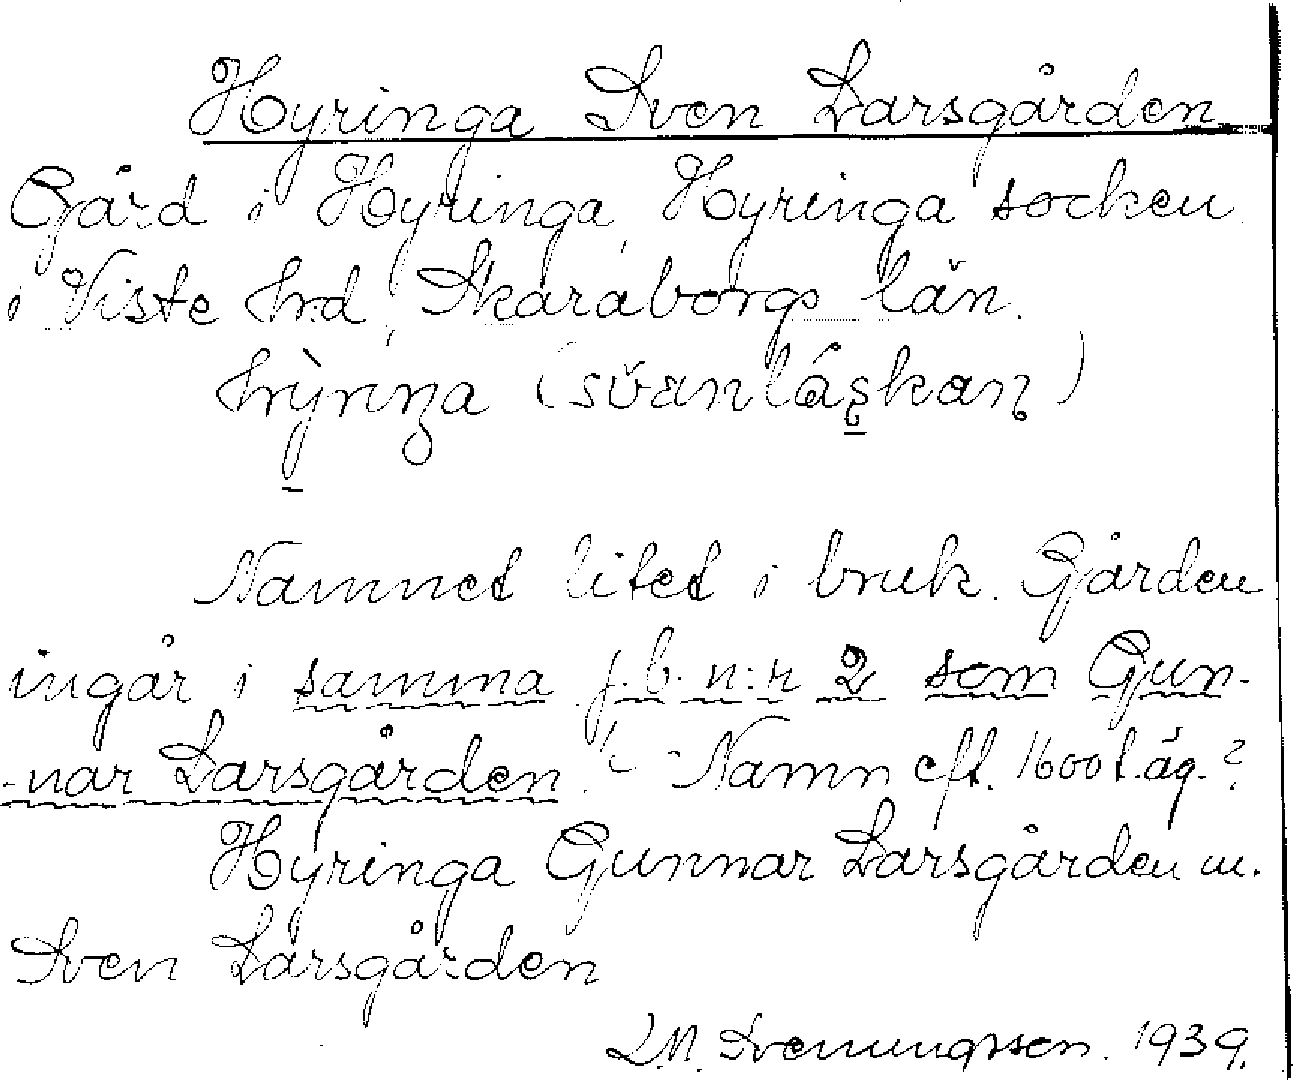 Hyringa Sven Larsgården
Gård i Hyringa, Hyringa socken
i Viste hrd, Skaraborgs län.
Namnet litet i bruk. Gården
ingår i samma j.b. n:r 2 som Gun-
-nar Larsgården. - Namn eft. 1600t.äg.?
Hyringa Gunnar Larsgården m.
Sven Larsgården
1939.